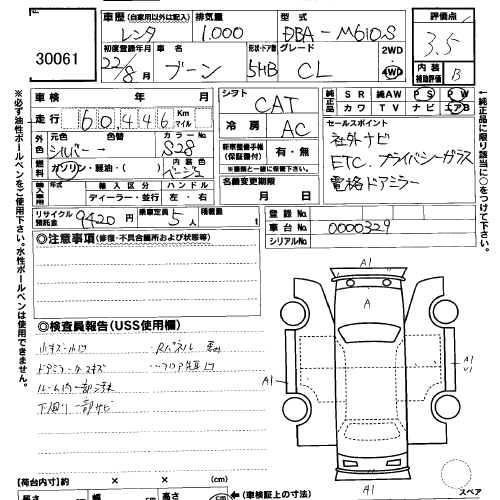 30061
車歴 (自家用以外は記入) 排気量 型式 評価点
レンタ 1.000 DBA-M610S 3.5
初度登録年月 車名 形状・ドア数 グレード 2WD
22/8月 ブーン 5HB CL 4WD
内装補助評価 B
車検 年 月 シフト CAT
純正品 SR 純AW PS PW
カワ TV ナビ エアB
走行 60,446 Km マイル
冷房 AC
セールスポイント
社外ナビ
ETC. プライバシーガラス
電格ドアミラー
外色 元色 色替 カラーNo.
シルバー→ S28
新車整備手帳(保証書付) 有・無
※書類と一緒に保管して下さい。
燃料 ガソリン・軽油・( ) 内装色 ベージュ
輸入車用 年式 輸入区分 ハンドル
ディーラー・並行 左・右
名義変更期限
月 日
リサイクル預託金 9420円 乗車定員 5人 積載量 t
登録No.
車台No. 0000329
シリアルNo.
◎注意事項(修復・不具合箇所および状態等)
◎検査員報告(USS使用欄)
小キズ・凹
ルーム内一部汚れ
下廻り一部サビ
A1
A
A1
A1
A1
スペア
【荷台内寸】約 × × (cm)
長さ 幅 高さ (cm) ←(車検証上の寸法)
※必ず油性ボールペンをご使用下さい。水性ボールペンは使用できません。
純正品に限り該当に○をつけて下さい。